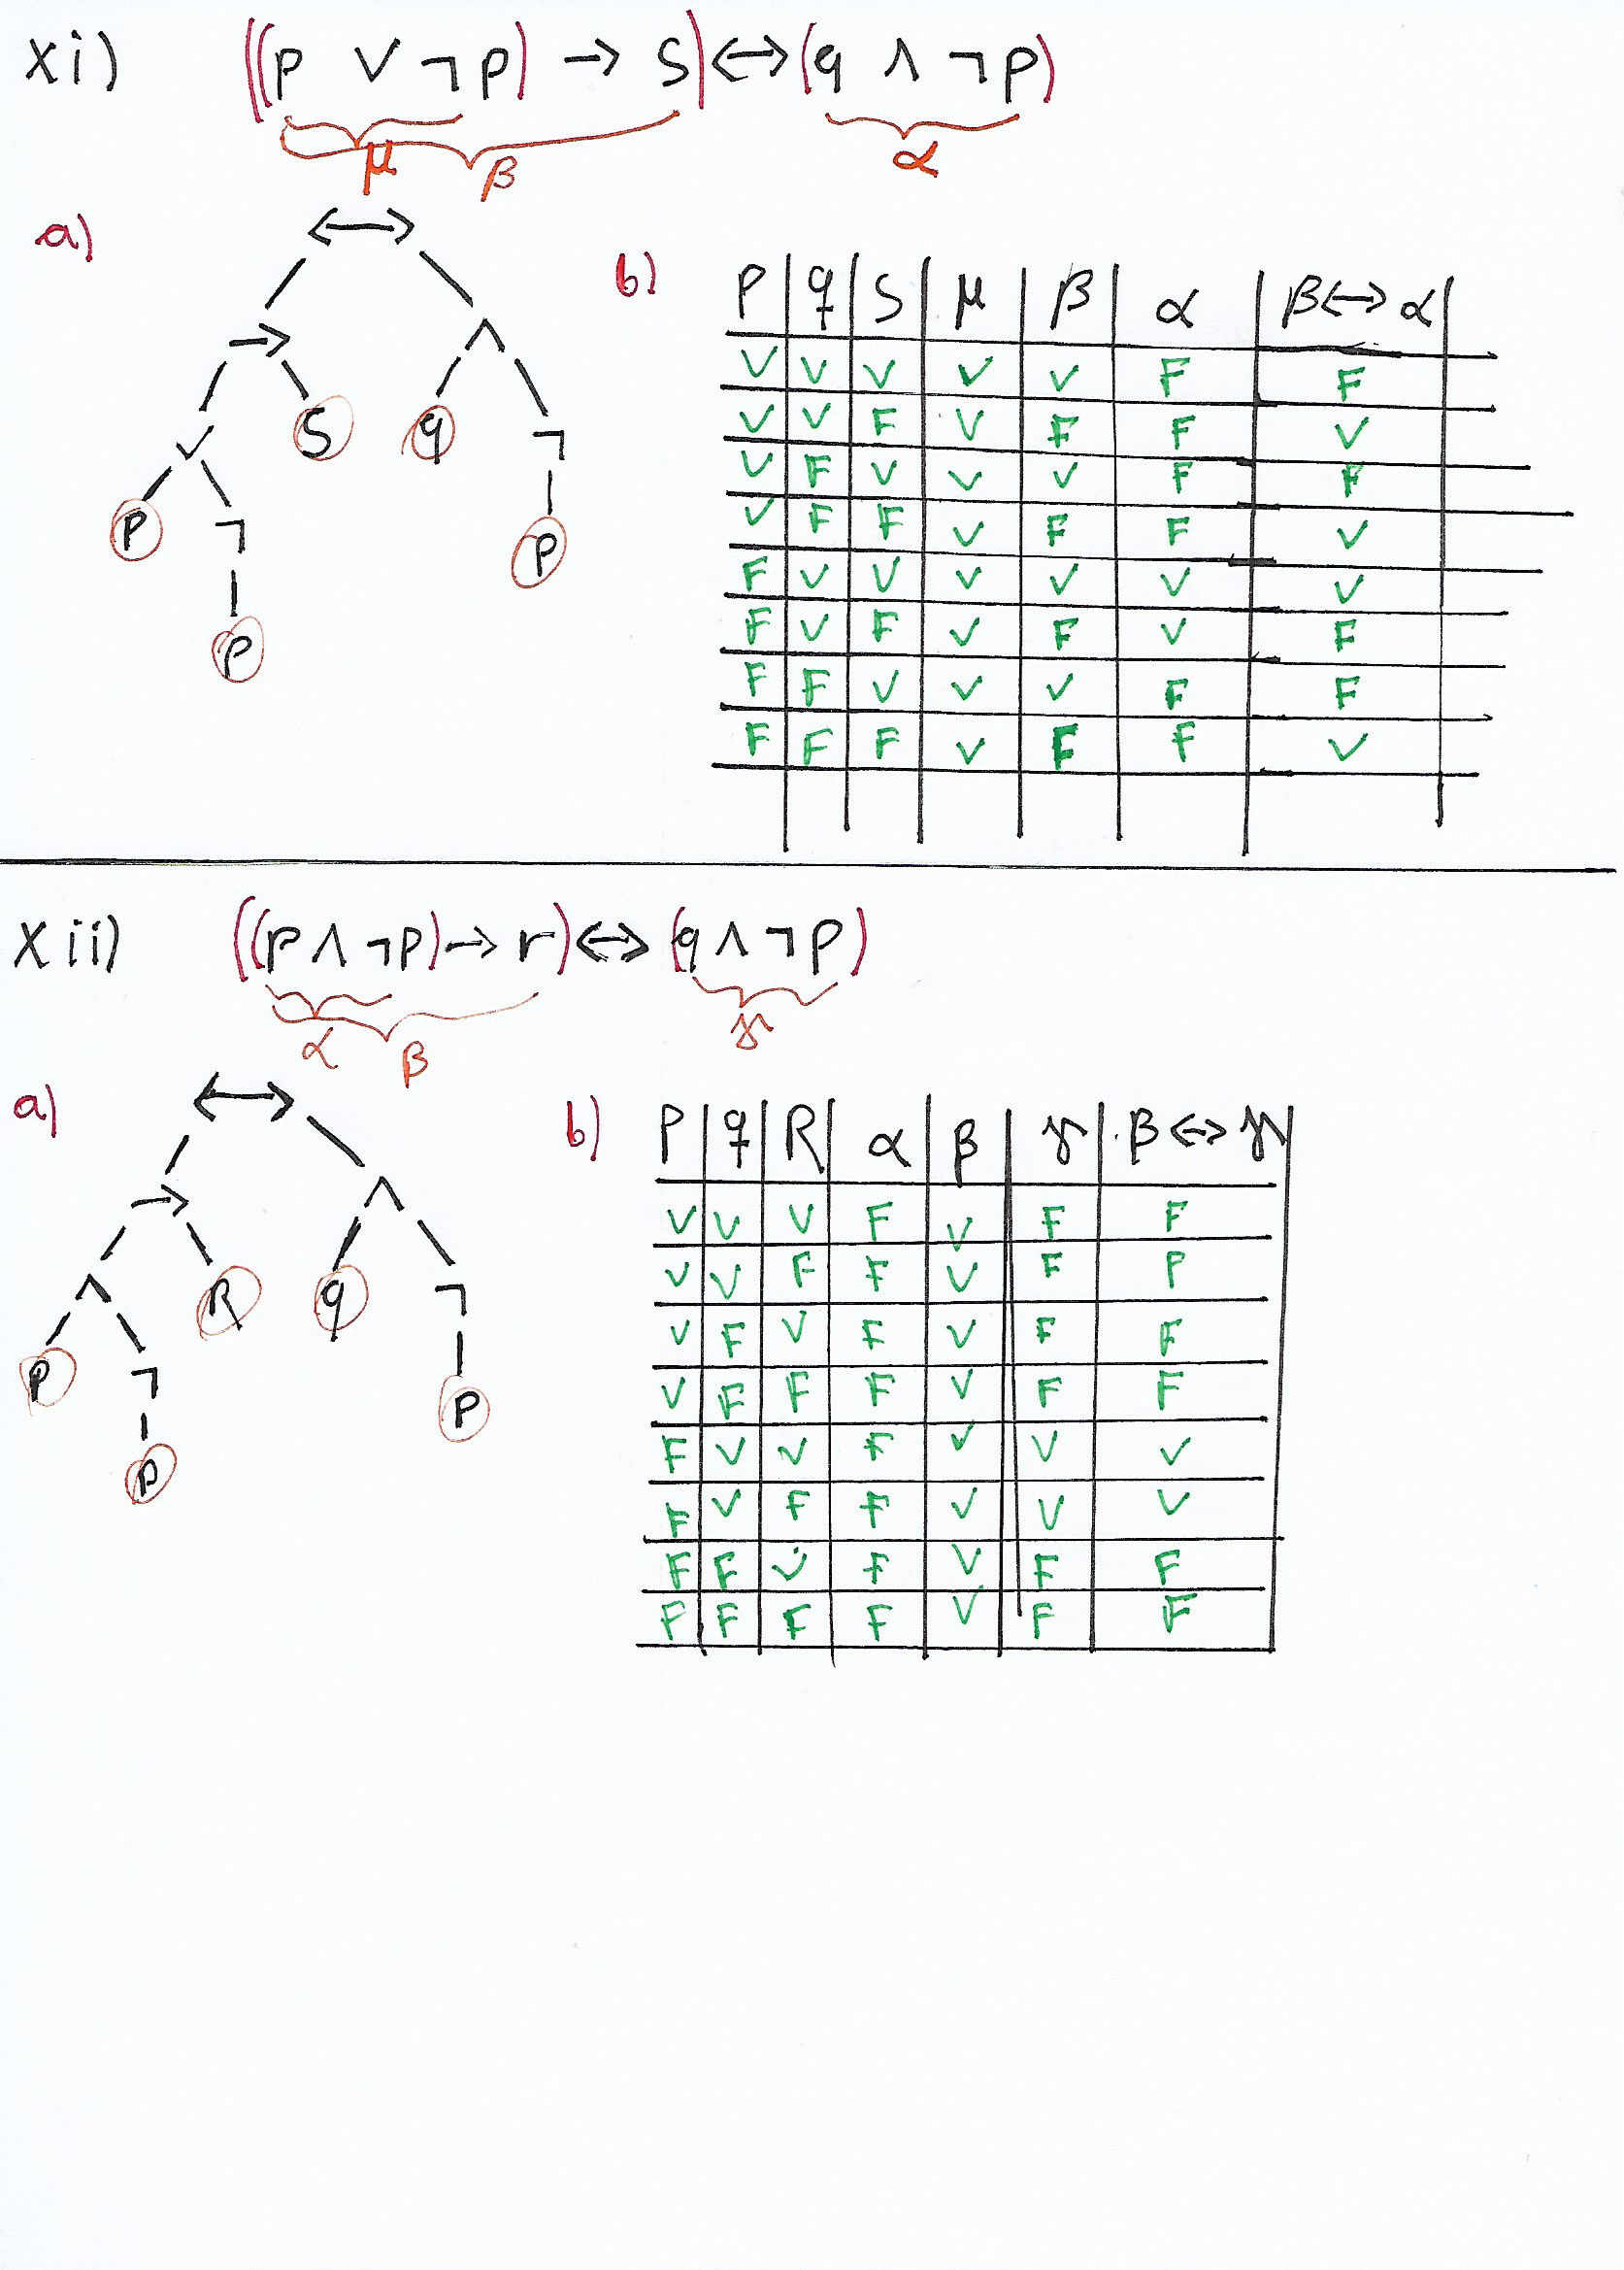 xi) ((p ∨ ¬p) → S) ↔ (q ∧ ¬p)
μ β α
a)
↔
→ ∧
∨ S q ¬
P ¬ P
P
b)
P q S μ β α β↔α
V V V V V F F
V V F V F F V
V F V V V F F
V F F V F F V
F V V V V V V
F V F V F V F
F F V V V F F
F F F V F F V
xii) ((p ∧ ¬p) → r) ↔ (q ∧ ¬p)
α β γ
a)
↔
→ ∧
∧ R q ¬
P ¬ P
P
b)
P q R α β γ β↔γ
V V V F V F F
V V F F V F F
V F V F V F F
V F F F V F F
F V V F V V V
F V F F V V V
F F V F V F F
F F F F V F F